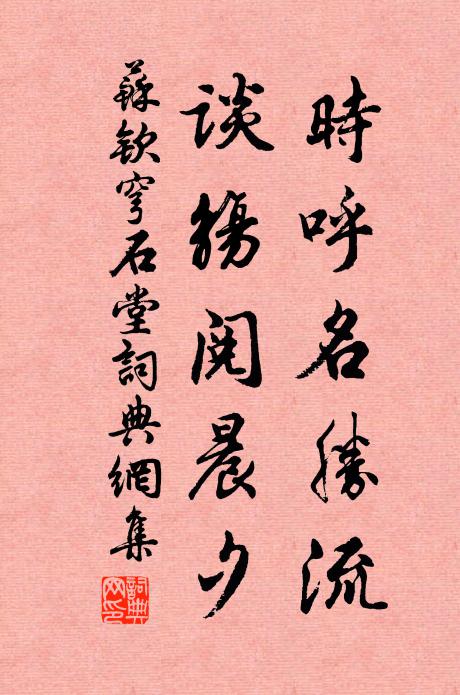 時呼名勝流
談觴閱晨夕
蘇欽穹石堂詞典網集
詞典網印